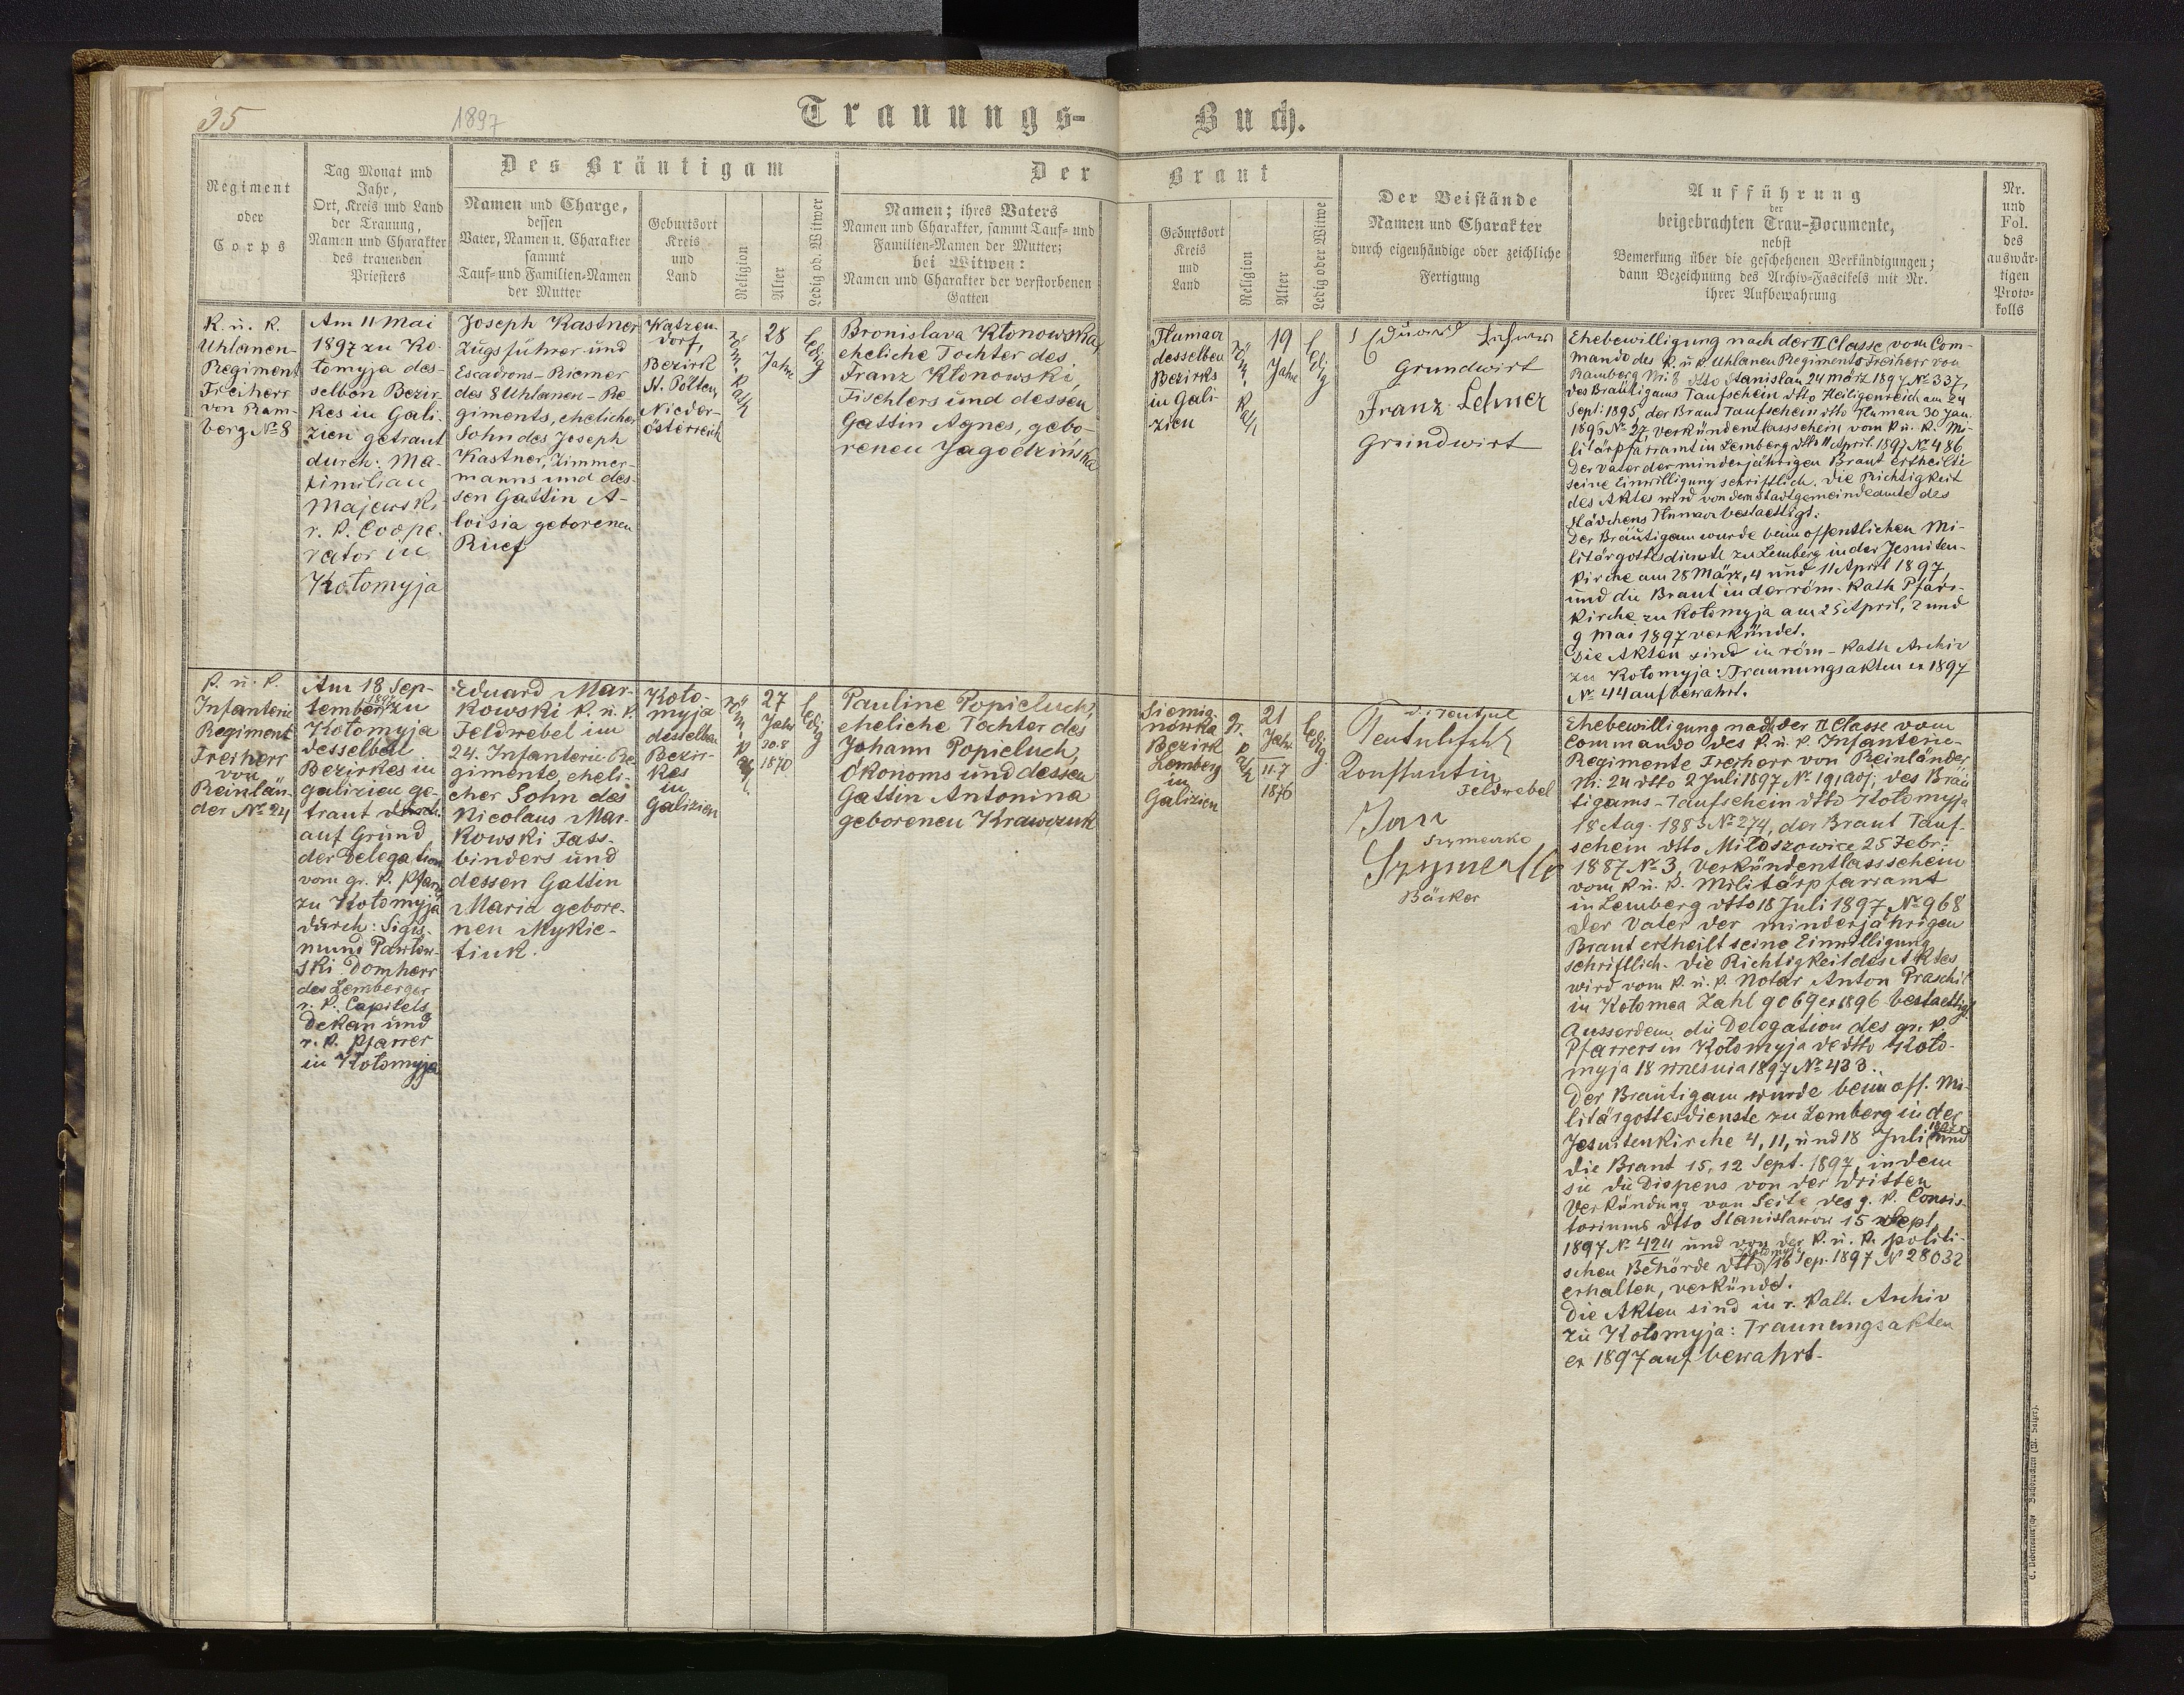 35
1897
Trauungs-Buch.
Regiment
oder
Corps
Tag Monat und
Jahr,
Ort, Kreis und Land
der Trauung,
Namen und Charakter
des trauenden
Priesters
Des Bräutigam
Namen und Charge,
dessen
Vater, Namen u. Charakter
sammt
Tauf- und Familien-Namen
der Mutter
Geburtsort
Kreis
und
Land
Religion
Alter
Ledig od. Witwer
Der Braut
Namen; ihres Vaters
Namen und Charakter, sammt Tauf- und
Familien-Namen der Mutter;
bei Witwen:
Namen und Charakter der verstorbenen
Gatten
Geburtsort
Kreis
und
Land
Religion
Alter
Ledig oder Witwe
Der Beistände
Namen und Charakter
durch eigenhändige oder zeichliche
Fertigung
Aufführung
der
beigebrachten Trau-Documente,
nebst
Bemerkung über die geschehenen Verkündigungen;
dann Bezeichnung des Archiv-Fascikels mit Nr.
ihrer Aufbewahrung
Nr.
und
Fol.
des
auswär-
tigen
Proto-
kolls
K. u. K.
Uhlanen-
Regiment
Freiherr
von Ram-
berg № 8
Am 11 Mai
1897 zu Ko-
łomyja des-
selben Bezir-
kes in Gali-
zien getraut
durch: Ma-
ximilian
Majewski
r. k. Coope-
rator in
Kołomyja
Joseph Kastner
Zugsführer und
Escadrons-Riemer
des 8 Uhlanen-Re-
giments, ehelicher
Sohn des Joseph
Kastner, Zimmer-
manns und des-
sen Gattin A-
loisia geborenen
Rief
Katzen-
dorf,
Bezirk
St. Pölten
Nieder-
österreich
röm. kath
28
Jahre
ledig
Bronislava Kłonowska,
eheliche Tochter des
Franz Kłonowski,
Tischlers und dessen
Gattin Agnes, gebo-
renen Jagodzińska
Tłumacz
desselben
Bezirks
in Gali-
zien
röm. kath
19
Jahre
ledig
Eduard
Grundwirt
Franz Lehner
Grundwirt
Ehebewilligung nach der II Classe vom Com-
mando des k. u. k. Uhlanen Regiments Freiherr von
Ramberg Nr. 8 dtto Stanislau 24 März 1897 № 337,
des Bräutigams Taufschein dtto Heiligenreich am 24
Sept: 1895, der Braut Taufschein dtto Tłumacz 30 Jan.
1896 № 27, Verkündentlassschein vom k. u. k. Mi-
litärpfarramt in Lemberg dtto 11 April. 1897 № 486
Der Vater der minderjährigen Braut ertheilte
seine Einwilligung schriftlich. Die Richtigkeit
des Aktes wird von dem Stadtgemeindeamte des
Städchens Tłumacz bestaettigt.
Der Bräutigam wurde beim öffentlichen Mi-
litärgottesdienste zu Lemberg in der Jesuiten-
kirche am 28 März, 4 und 11 April 1897,
und die Braut in der röm-kath Pfarr-
kirche zu Kołomyja am 25 April, 2 und
9 Mai 1897 verkündet.
Die Akten sind in röm-kath Archiv
zu Kołomyja: Trauungsakten ex 1897
№ 44 aufbewahrt.
K. u. K.
Infanterie
Regiment
Freiherr
von
Reinlän-
der № 24
Am 18 Sep-
tember 1897 zu
Kołomyja
desselben
Bezirkes in
Galizien ge-
traut durch:
auf Grund
der Delegation
vom gr. k. Pfarr
zu Kołomyja
durch: Sigis-
mund Pawłow-
ski Domherr
des Lemberger
r. k. Capitels
Dekan und
r. k. Pfarrer
in Kołomyja
Eduard Mar-
kowski k. u. k.
Feldwebel im
24. Infanterie-Re-
gimente, eheli-
cher Sohn des
Nicolaus Mar-
kowski Fass-
binders und
dessen Gattin
Maria gebore-
nen Mykie-
tiuk.
Koło-
myja
desselben
Bezir-
kes
in
Galizien
röm. kath.
27
Jahre
30.8
1870
ledig
Pauline Popieluch,
eheliche Tochter des
Johann Popieluch,
Ökonoms und dessen
Gattin Antonina
geborenen Krawczuk
Siemia-
nówka
Bezirk
Lemberg
in
Galizien
gr. kath
21
Jahre
11.7
1876
ledig
Konstantin
Feldwebel
Jan
Szymenko
Bäcker
Ehebewilligung nach der II Classe vom
Commando des k. u. k. Infanterie-
Regimente Freiherr von Reinländer
Nr. 24 dtto 2 Juli 1897 № 191 adj; des Bräu-
tigams-Taufschein dtto Kołomyja
18 Aug. 1883 № 274, der Braut Tauf-
schein dtto Miłoszowice 25 Febr:
1887 № 3, Verkündentlassschein
vom k. u. k. Militärpfarramt
in Lemberg dtto 18 Juli 1897 № 968
Der Vater der minderjährigen
Braut ertheilt seine Einwilligung
schriftlich. Die Richtigkeit des Aktes
wird vom k. u. k. Notar Anton Praschil
in Kołomea Zahl 9069 ex 1896 bestaettigt
Ausserdem die Delegation des gr. k.
Pfarrers in Kołomyja de dtto Koło-
myja 18 wrzesnia 1897 № 433.
Der Bräutigam wurde beim öff. Mi-
litärgottesdienste zu Lemberg in der
Jesuitenkirche 4, 11, und 18 Juli 1897 und
die Braut 15, 12 Sept. 1897, indem
sie die Dispens von der dritten
Verkündung von Seite des g. k. Consis-
toriums dtto Stanisławów 15 Sept
1897 № 424 und von der k. u. k. politi-
schen Behörde dtto Kołomyja 16 Sep. 1897 № 28032
erhalten, verkündet.
Die Akten sind in r. kath. Archiv
zu Kołomyja: Trauungsakten
ex 1897 aufbewahrt.